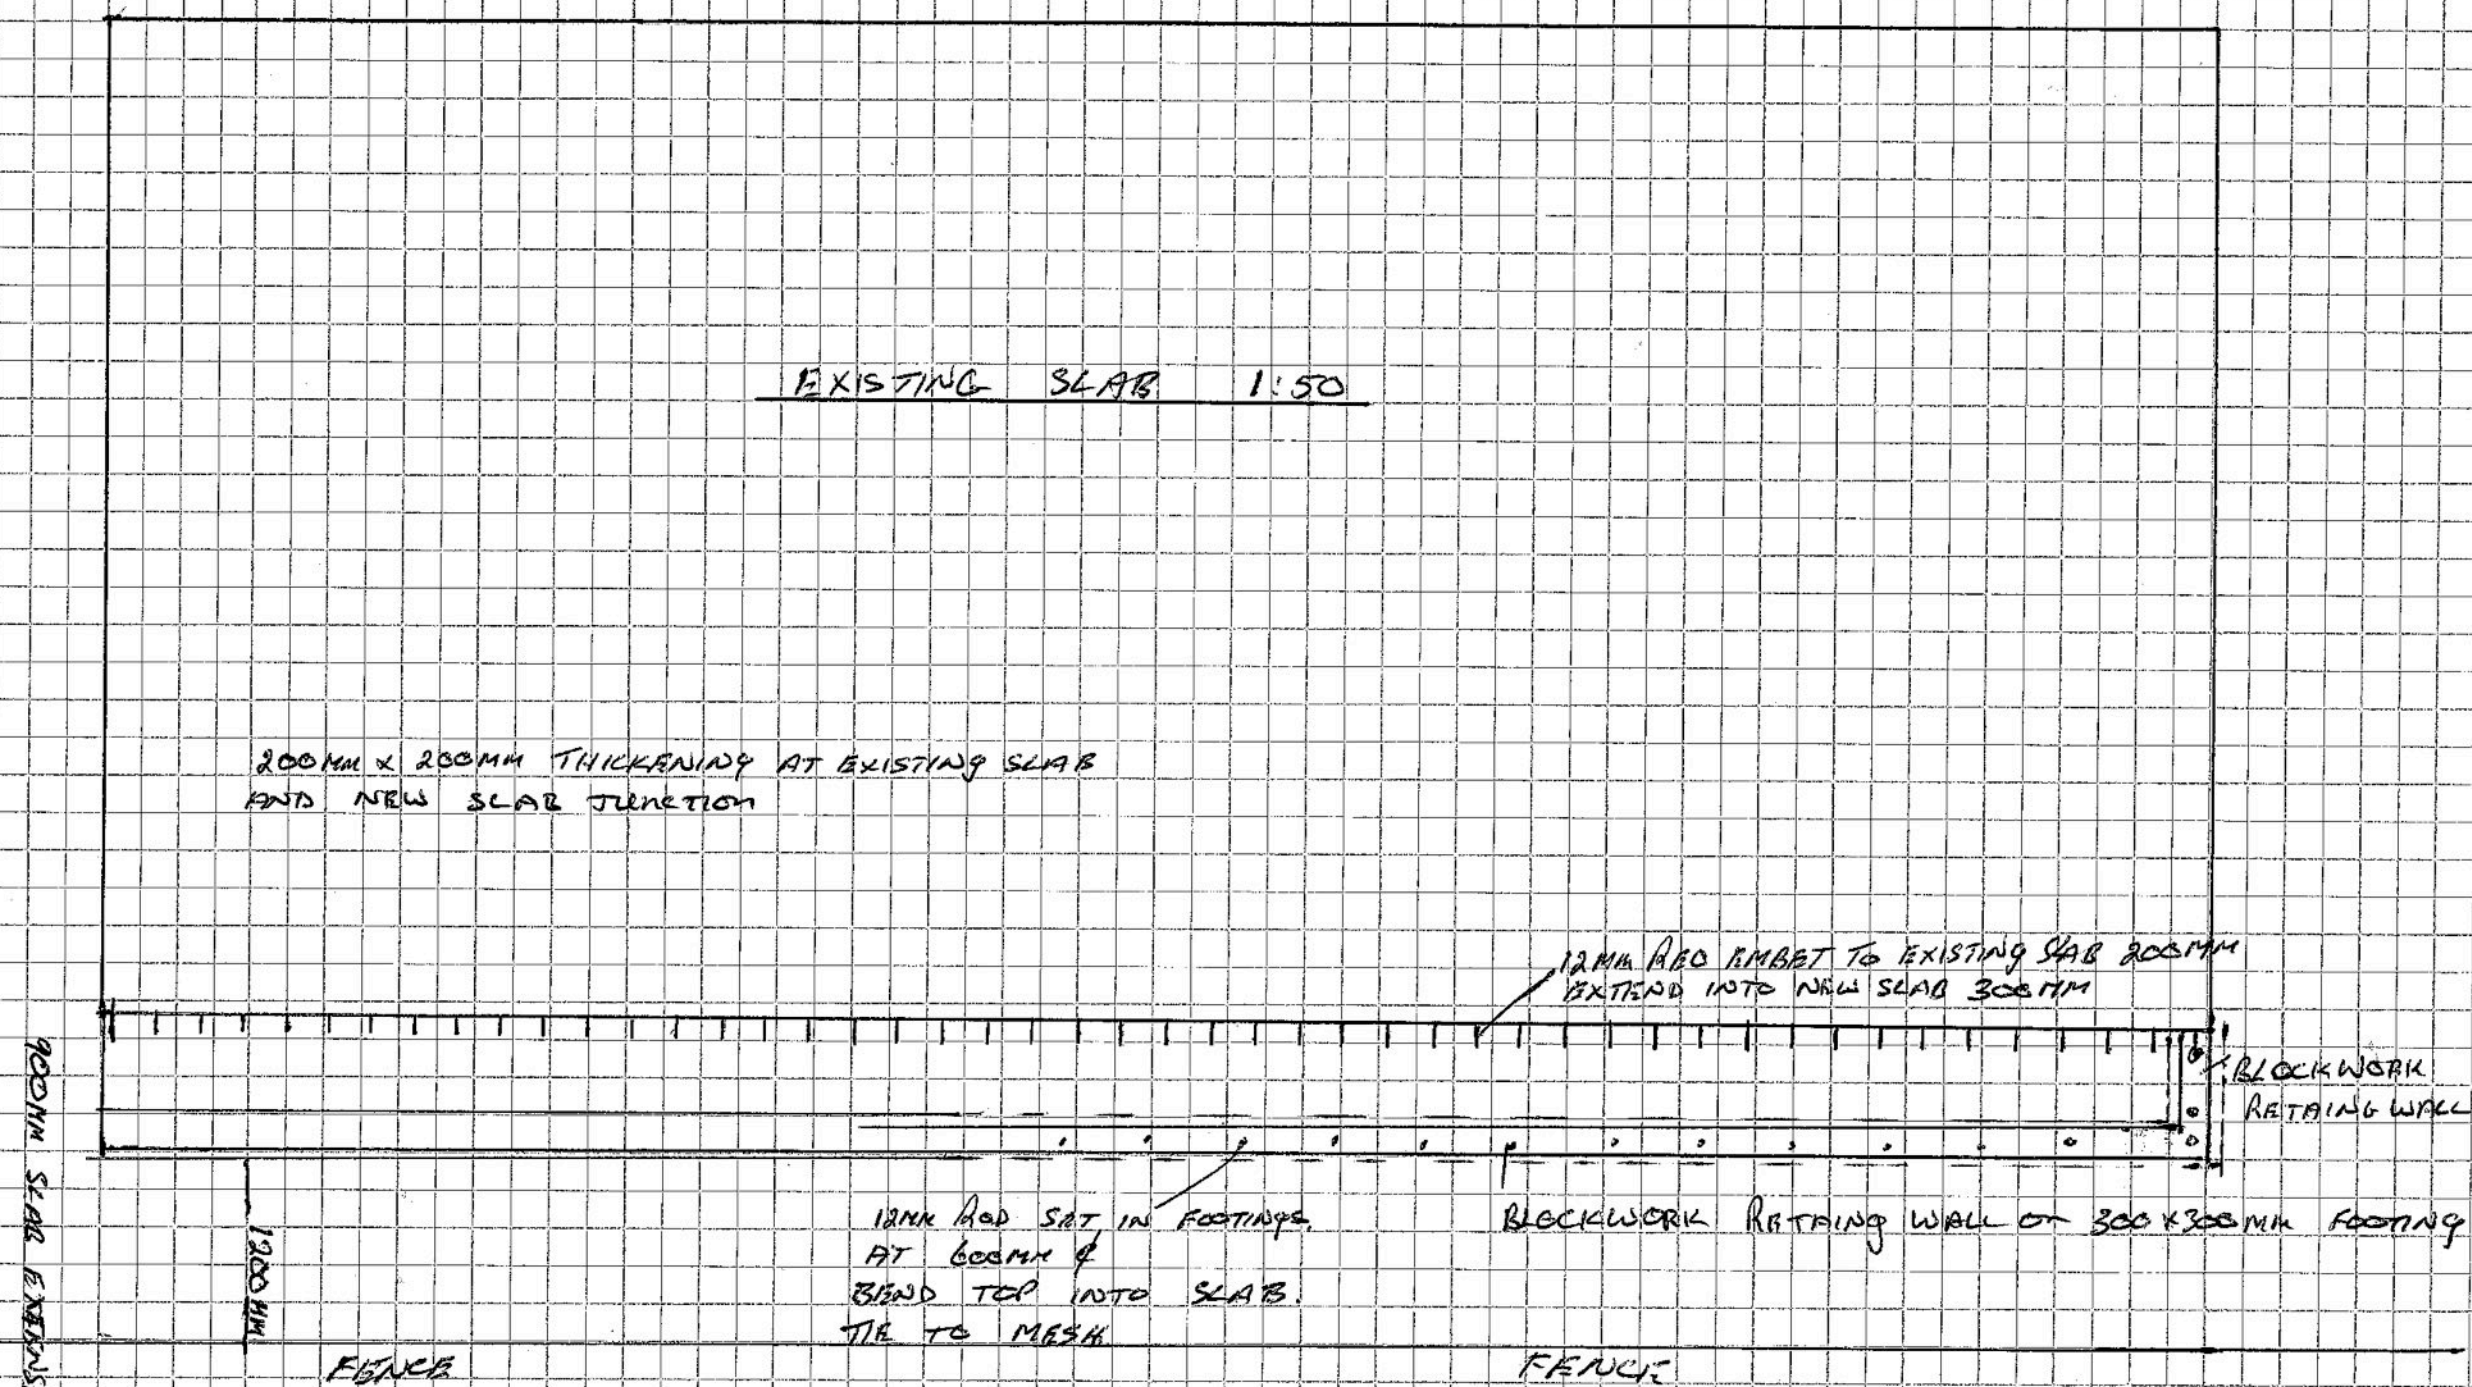 EXISTING SLAB 1:50
200MM X 200MM THICKENING AT EXISTING SLAB
AND NEW SLAB JUNCTION
12MM REO EMBET TO EXISTING SLAB 200MM
EXTEND INTO NEW SLAB 300MM
BLOCKWORK
RETAING WALL
900MM SLAB EXTENS
1200MM
12MM ROD SET IN FOOTINGS.
AT 600MM ¢
BEND TOP INTO SLAB.
TIE TO MESH
BLOCKWORK RETAING WALL ON 300X300MM FOOTING
FENCE
FENCE